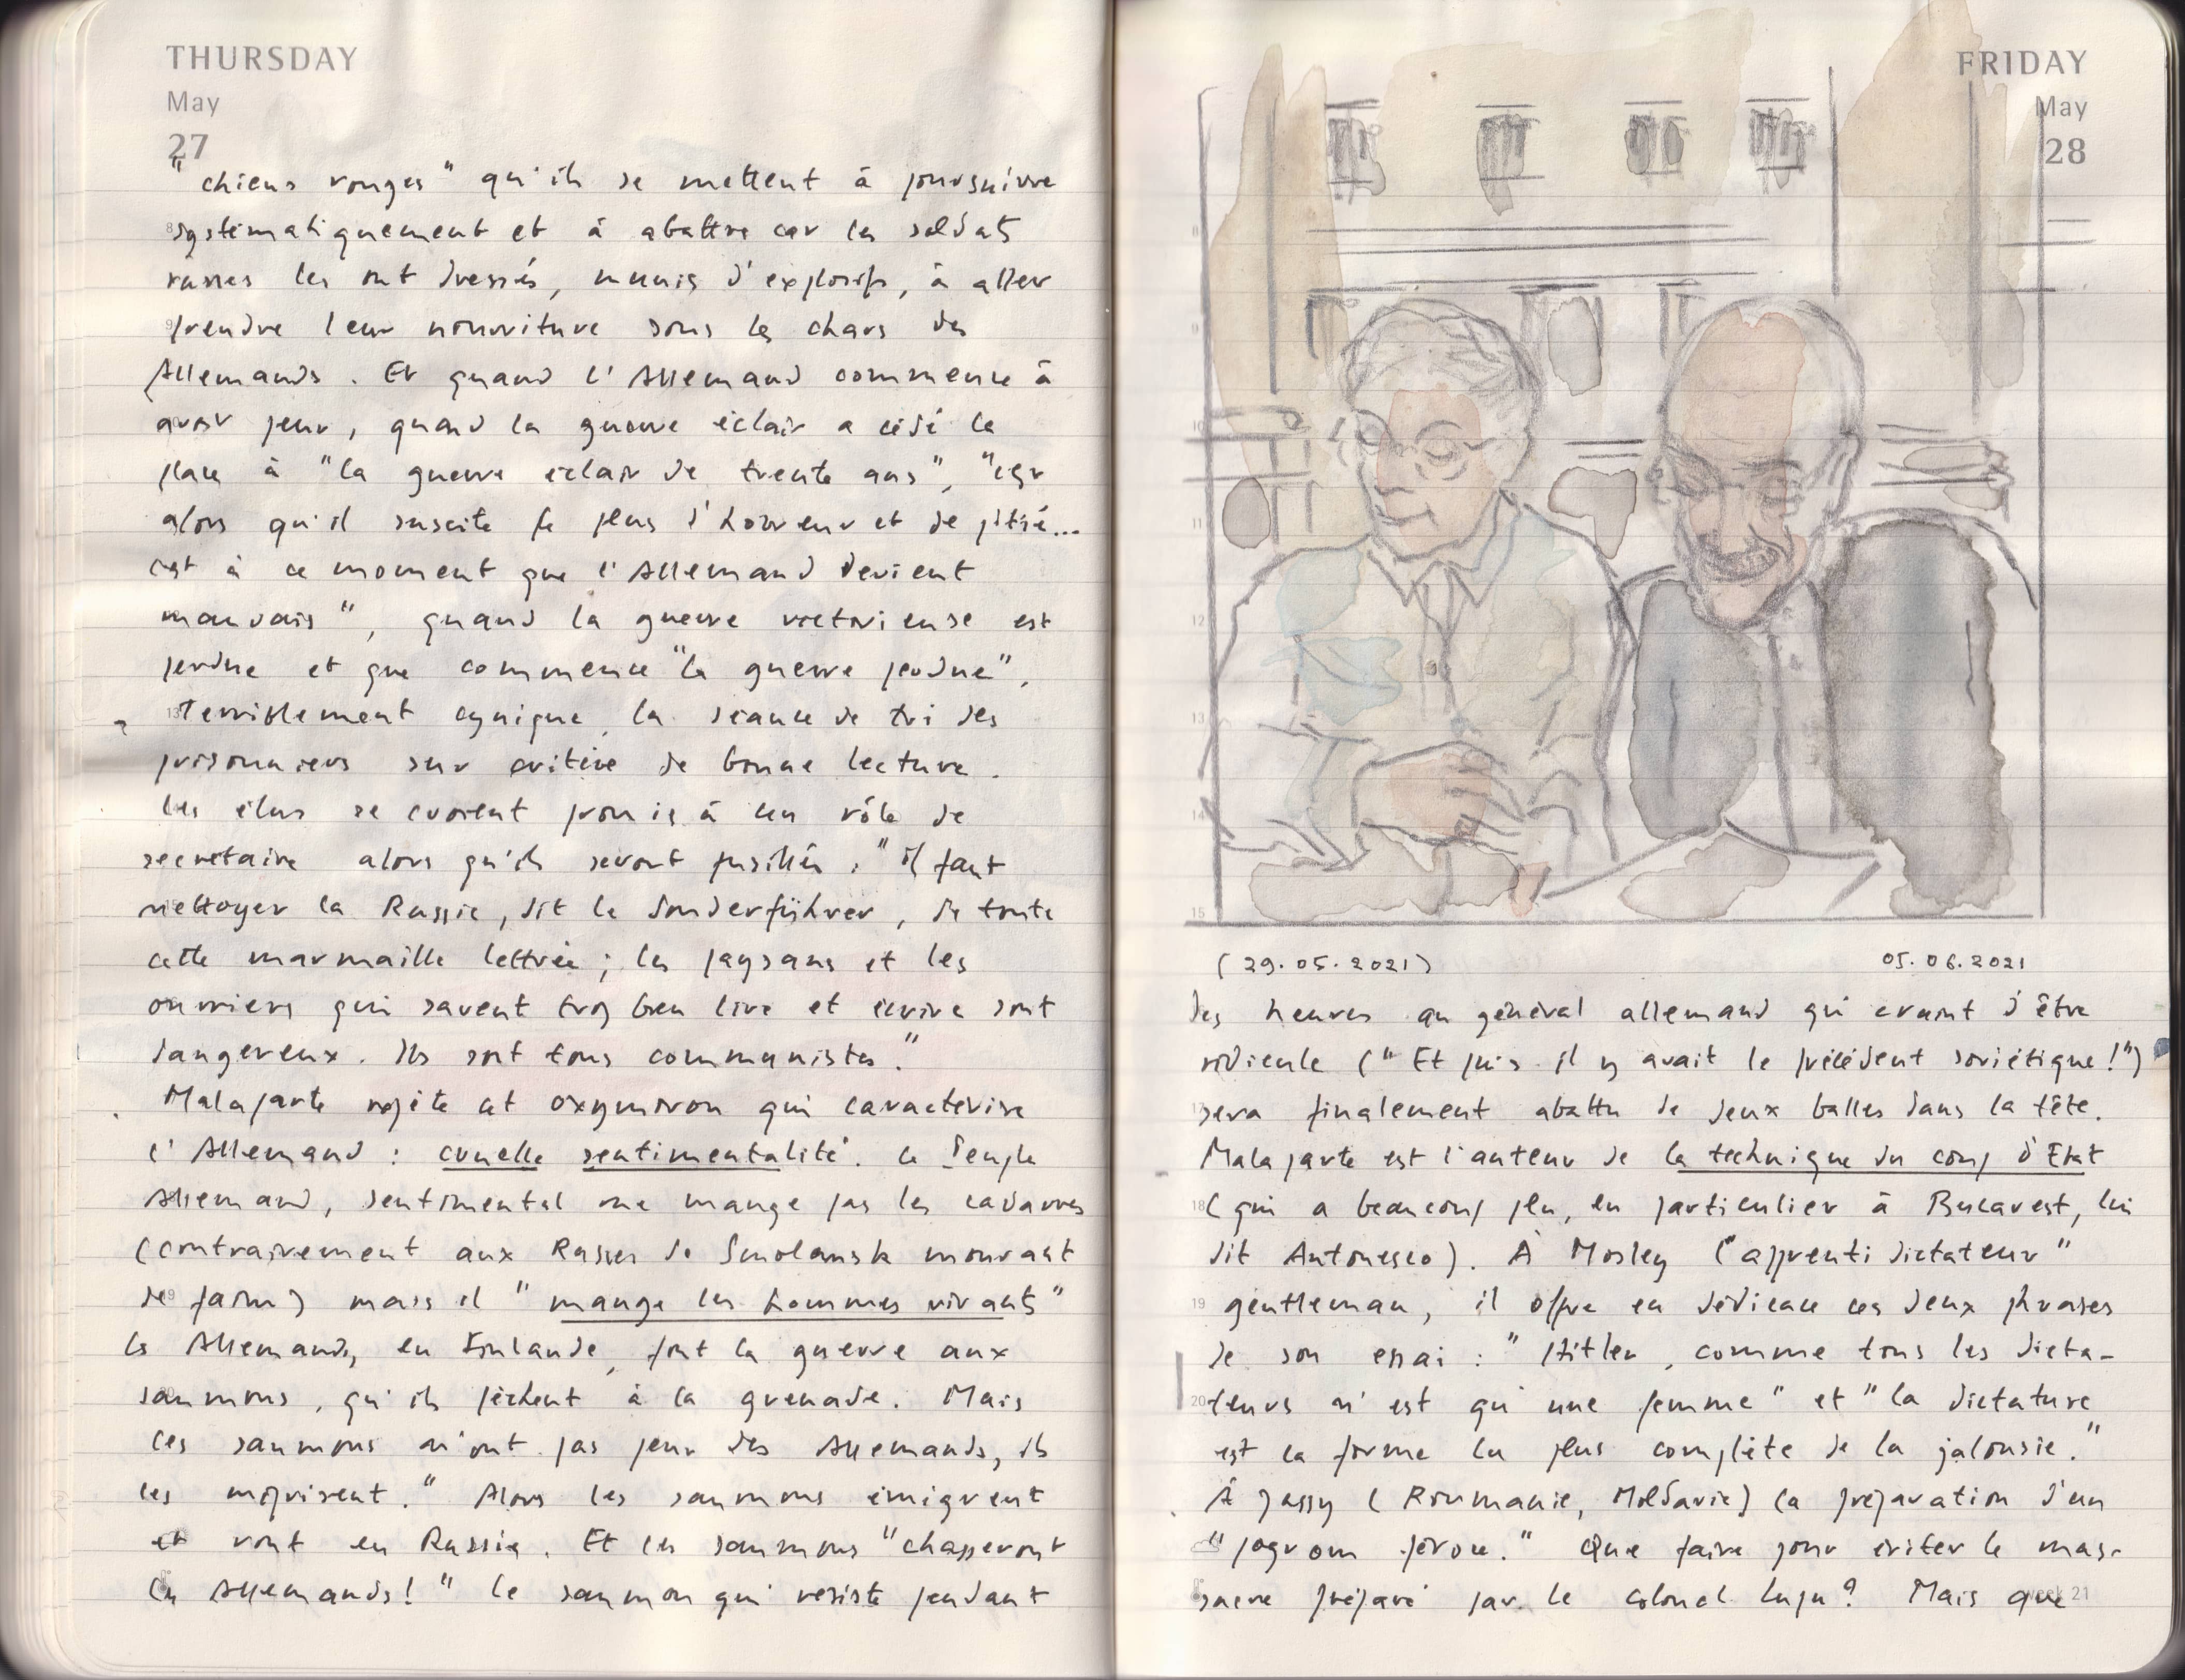 THURSDAY
May
27
"chiens rouges" qu'ils se mettent à poursuivre
systématiquement et à abattre car les soldats
russes les ont dressés, munis d'explosifs, à aller
prendre leur nourriture sous les chars des
Allemands. Et quand l'Allemand commence à
avoir peur, quand la guerre éclair a cédé la
place à "la guerre éclair de trente ans", "c'est
alors qu'il suscite le plus d'horreur et de pitié...
c'est à ce moment que l'Allemand devient
mauvais", quand la guerre victorieuse est
perdue et que commence "la guerre perdue".
Terriblement cynique, la séance de tri des
prisonniers sur critère de bonne lecture.
Les élus se croient promis à un rôle de
secrétaire alors qu'ils seront fusillés : "il faut
nettoyer la Russie, dit le Sonderführer, de toute
cette marmaille lettrée ; les paysans et les
ouvriers qui savent trop bien lire et écrire sont
dangereux. Ils sont tous communistes."
Malaparte répète cet oxymoron qui caractérise
l'Allemand : cruelle sentimentalité. Le Peuple
Allemand, sentimental ne mange pas les cadavres
(contrairement aux Russes de Smolensk mourant
de faim) mais il "mange les hommes vivants"
Les Allemands, en Finlande, font la guerre aux
saumons, qu'ils pêchent à la grenade. Mais
les saumons n'ont pas peur des Allemands, ils
les méprisent." Alors les saumons émigrent
et vont en Russie. Et les saumons "chasseront
les Allemands!" Le saumon qui résiste pendant
FRIDAY
May
28
(29.05.2021) 05.06.2021
des heures au général allemand qui craint d'être
ridicule ("Et puis il y avait le précédent soviétique!")
sera finalement abattu de deux balles dans la tête.
Malaparte est l'auteur de la technique du coup d'Etat
(qui a beaucoup plu, en particulier à Bucarest, lui
dit Antonesco). À Mosley ("apprenti dictateur"
gentleman, il offre en dédicace ces deux phrases
de son essai : "Hitler, comme tous les dicta-
teurs n'est qu'une femme" et "la dictature
est la forme la plus complète de la jalousie."
À Jassy (Roumanie, Moldavie) la préparation d'un
"pogrom féroce." Que faire pour éviter le mas-
sacre préparé par le colonel Lupu? Mais que
week 21